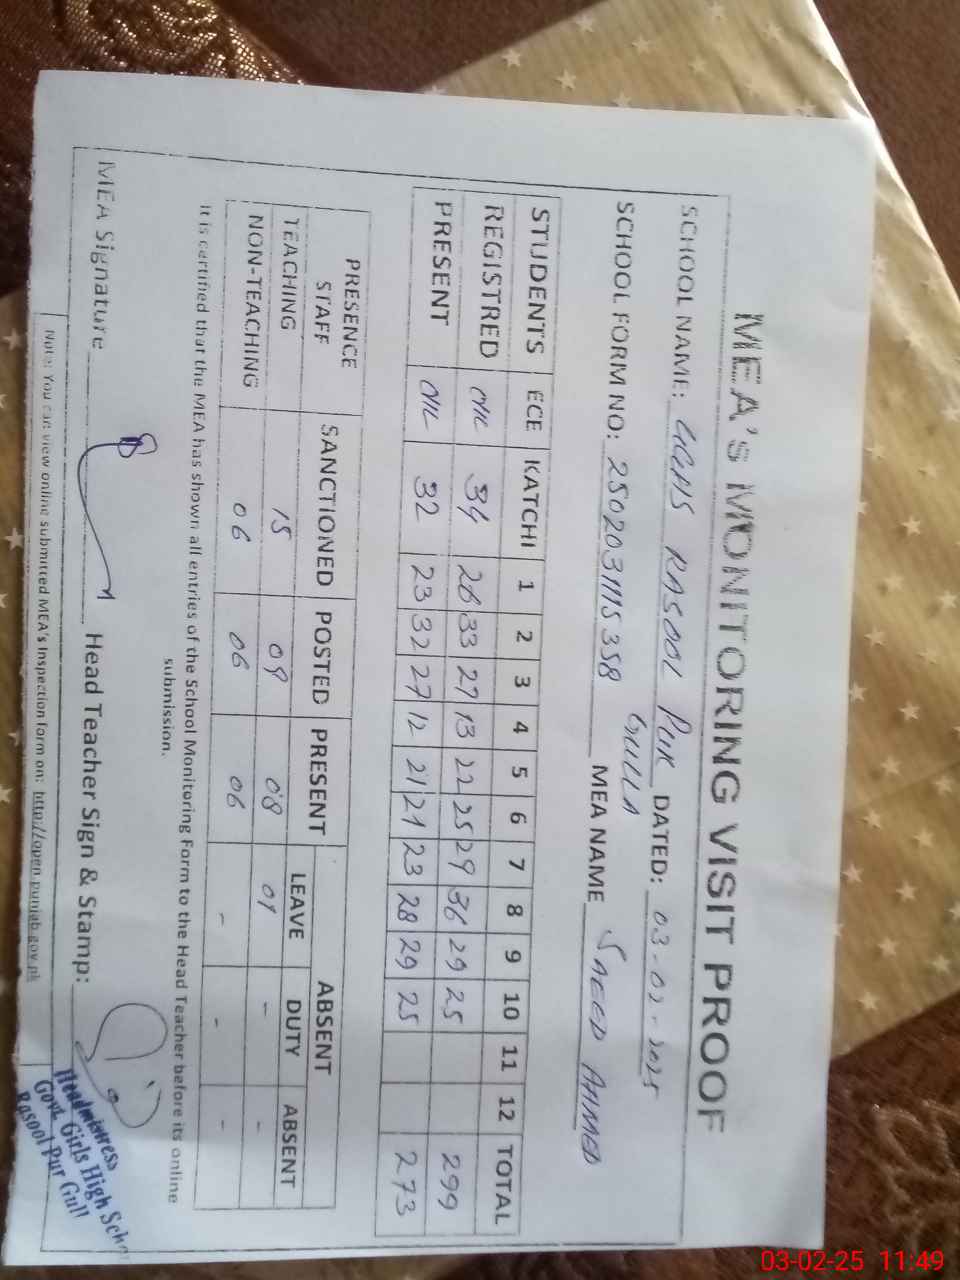 MEA'S MONITORING VISIT PROOF
SCHOOL NAME: GGHS RASOOL PUR GULLA DATED: 03-02-2025
SCHOOL FORM NO: 2502031115358 MEA NAME SAEED AHMED
STUDENTS ECE KATCHI 1 2 3 4 5 6 7 8 9 10 11 12 TOTAL
REGISTRED NIL 34 26 33 27 13 22 25 29 36 29 25 299
PRESENT NIL 32 23 32 27 12 21 21 23 28 29 25 273
PRESENCE STAFF SANCTIONED POSTED PRESENT ABSENT
LEAVE DUTY ABSENT
TEACHING 15 09 08 01 - -
NON-TEACHING 06 06 06 - - -
It is certified that the MEA has shown all entries of the School Monitoring Form to the Head Teacher before its online
submission.
MEA Signature Head Teacher Sign & Stamp:
Headmistress
Govt. Girls High School
Rasool Pur Gull
Note: You can view online submitted MEA's Inspection form on: http://open.punjab.gov.pk
03-02-25 11:49